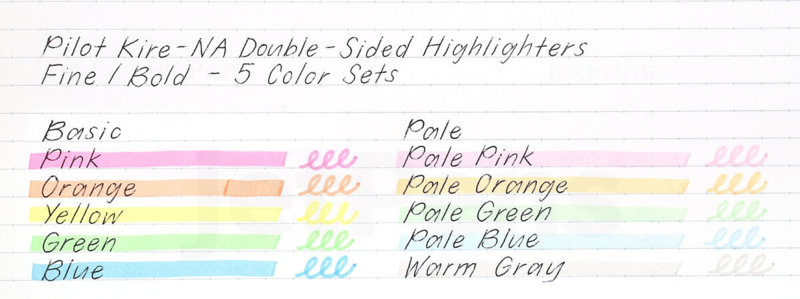 Pilot Kire-NA Double-Sided Highlighters
Fine / Bold - 5 Color Sets
JetPens
Basic
Pink
Orange
Yellow
Green
Blue
Pale
Pale Pink
Pale Orange
Pale Green
Pale Blue
Warm Gray